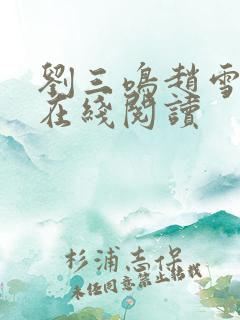 劉三鳴趙雪
在綫閱讀
杉浦志保
未經同意禁止轉載